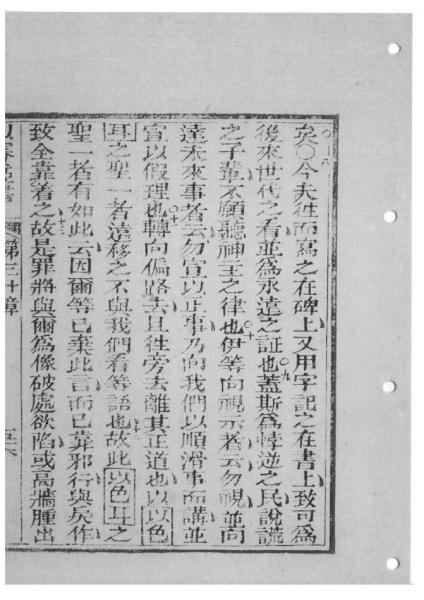 矣○今夫往而寫之在碑上又用字記之在書上致可爲
後來世代之看並爲永遠之証也蓋斯爲悖逆之民說謊
之子輩不願聽神主之律也伊等向視示者云勿視並向
達未來事者云勿宣以正事乃向我們以順滑事而講並
宣以假理也轉向偏路去且徃旁去離其正道也以以色
耳之聖一者遠移之不與我們看等語也故此以色耳之
聖一者有如此云因爾等已棄此言而已靠邪行與矣作
致全靠着之故是罪將與爾爲像破處欲陷或高牆腫出
第三十章